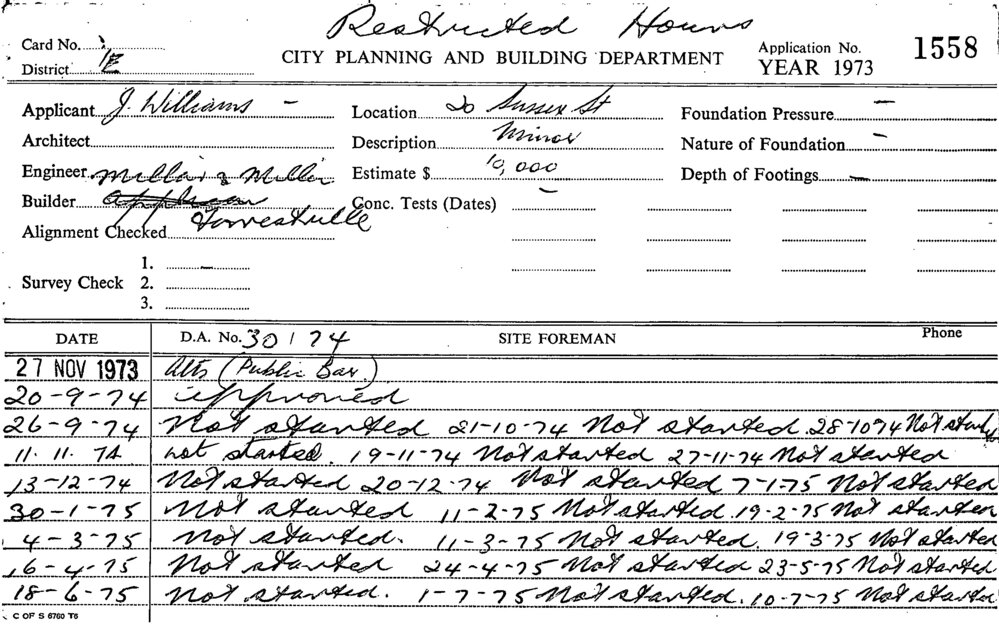 Restricted Hours
Card No.
District 1E
CITY PLANNING AND BUILDING DEPARTMENT
Application No. 1558
YEAR 1973
Applicant J. Williams -
Location 20 Sussex St
Foundation Pressure -
Architect
Description Minor
Nature of Foundation -
Engineer Millar & Millar
Estimate $ 10,000
Depth of Footings -
Builder
Conc. Tests (Dates) -
Alignment Checked
Survey Check
1. -
2.
3.
DATE D.A. No. 30/74 SITE FOREMAN Phone
27 NOV 1973 Alts (Public Bar.)
20-9-74 approved
26-9-74 Not started 21-10-74 Not started. 28-10 74 Not started
11. 11. 74 not started. 19-11-74 Not started 27-11-74 Not started
13-12-74 Not started 20-12-74 Not started 7-1-75 Not started
30-1-75 Not started 11-2-75 Not started. 19-2-75 Not started
4-3-75 Not started. 11-3-75 Not started. 19-3-75 Not started
16-4-75 Not started 24-4-75 Not started 23-5-75 Not started
18-6-75 Not started. 1-7-75 Not started. 10-7-75 Not started
C OF S 6760 T6